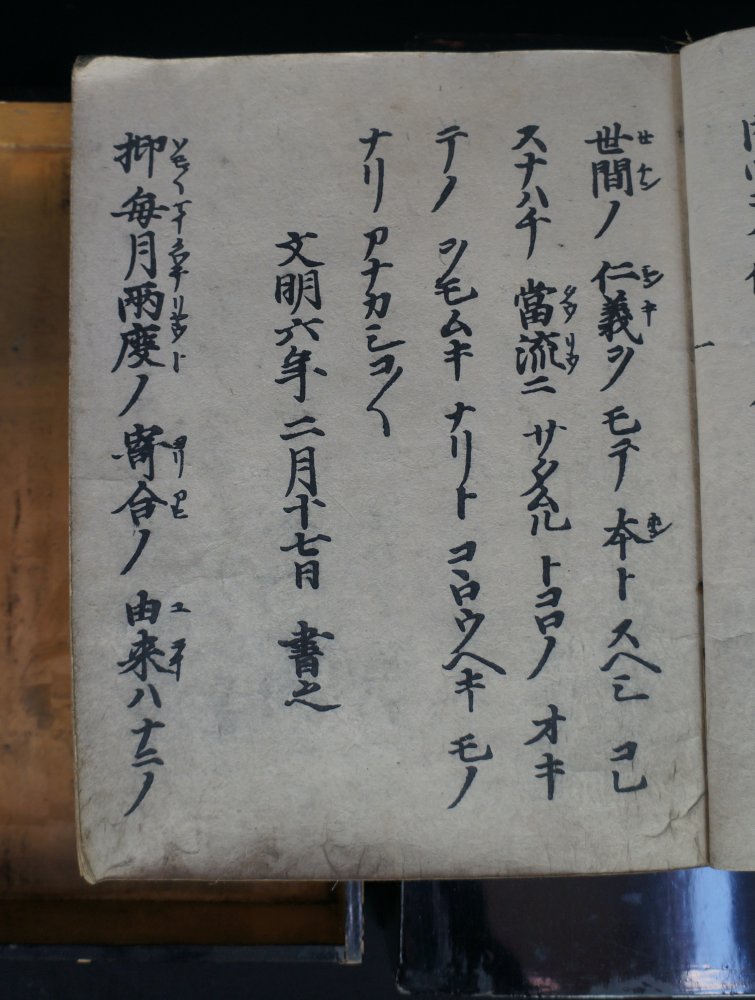 世間ノ 仁義ヲ モテ 本ト スヘシ コレ
スナハチ 當流ニ サタムル トコロノ オキ
テノ ヲモムキ ナリト コヽロウヘキ モノ
ナリ アナカシコ〱
文明六年 二月十七日 書之
抑 毎月兩度ノ 寄合ノ 由来ハ ナニノ